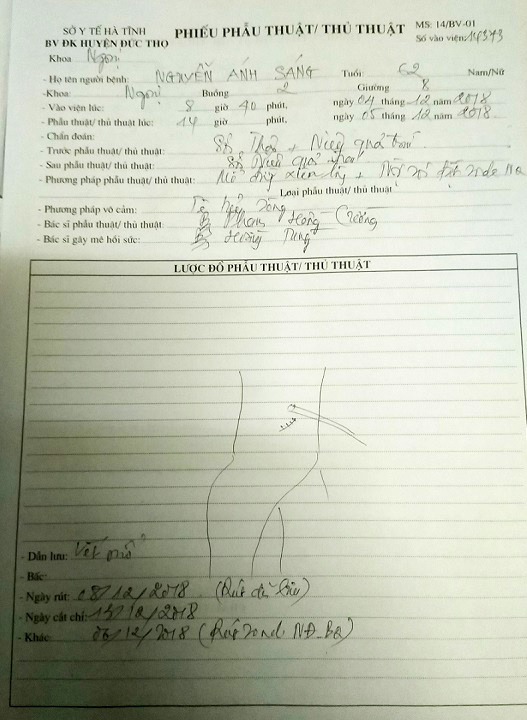 SỞ Y TẾ HÀ TĨNH
BV ĐK HUYỆN ĐỨC THỌ
PHIẾU PHẪU THUẬT/ THỦ THUẬT
MS: 14/BV-01
Số vào viện: 14373
Khoa Ngoại
- Họ tên người bệnh: NGUYỄN ÁNH SÁNG Tuổi: 62 Nam/Nữ
- Khoa: Ngoại Buồng 2 Giường 8
- Vào viện lúc: 8 giờ 40 phút, ngày 04 tháng 12 năm 2018
- Phẫu thuật/ thủ thuật lúc: 14 giờ phút, ngày 05 tháng 12 năm 2018
- Chẩn đoán:
- Trước phẫu thuật/ thủ thuật: Sỏi Thận + Niệu quản
- Sau phẫu thuật/ thủ thuật: Sỏi Niệu quản
- Phương pháp phẫu thuật/ thủ thuật: Mổ + đặt sonde
Loại phẫu thuật/ thủ thuật
- Phương pháp vô cảm: Tê tủy sống
- Bác sĩ phẫu thuật/ thủ thuật: Bs Phạm Hồng Cường
- Bác sĩ gây mê hồi sức: Bs Hoàng Tùng
LƯỢC ĐỒ PHẪU THUẬT/ THỦ THUẬT
- Dẫn lưu: Vết mổ
- Bấc:
- Ngày rút: 08/12/2018 (Rút dẫn lưu)
- Ngày cắt chỉ: 13/12/2018
- Khác: 06/12/2018 (Rút sonde NĐ-BQ)